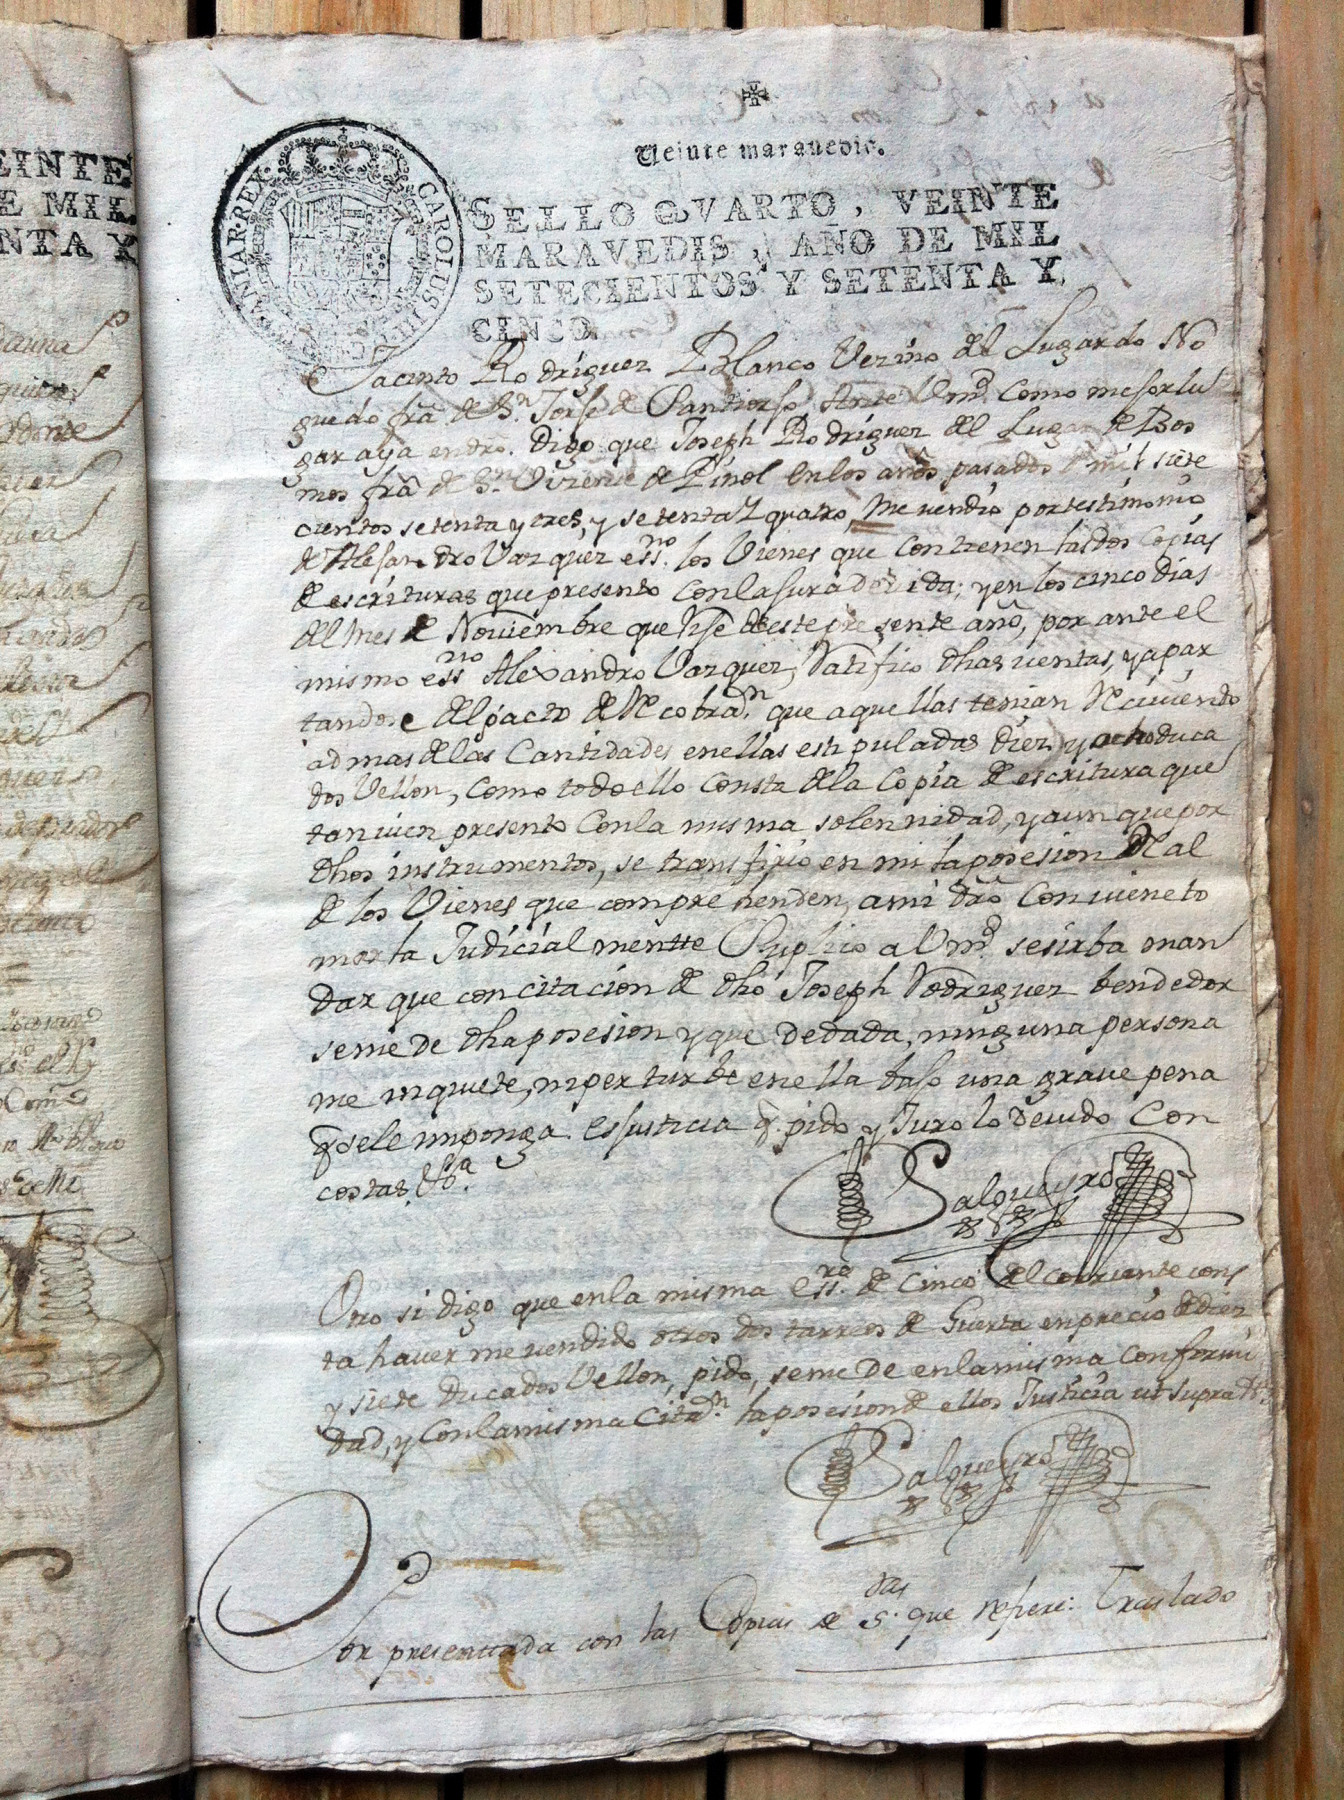 Veinte maravedis.
SELLO QVARTO, VEINTE
MARAVEDIS, AÑO DE MIL
SETECIENTOS Y SETENTA Y
CINCO.
CAROLUS III
HISPANIAR. REX
Jacinto Rodriguez Blanco Vezino del Lugar do No
guedo frã de Sn Jorje de Santiorjo Ante Vmd. Como mejor lu
gar aya en dro. Digo que Joseph Rodriguez del Lugar de Bos
mos frã de Sn Vizente de Pinol en los años pasados de mil siete
cientos setenta y tres, y setenta y quatro, me vendio por testimonio
de Alejandro Vazquez essno. los Vienes que contienen las dos Copias
de escrituras que presento con la jura devida; y en los cinco dias
del mes de Noviembre que rije de este presente año, por ante el
mismo essno Alexandro Vazquez, Ratifico dhas ventas, y apar
tandose del pacto de Recobran. que aquellas tenian Reciviendo
ad mas de las Cantidades en ellas estipuladas diez y ocho duca
dos Vellon, como todo ello Consta de la Copia de escritura que
tanvien presento Con la misma solennidad, y aunque por
dhos instrumentos, se transfirio en mi la posesion Real
de los Vienes que comprehenden, a mi dro Conviene to
marla Judicialmentte Suplico a Vmd. se sirba man
dar que con citacion de dho Joseph Rodriguez bendedor
se me de dha posesion y que dedada, ninguna persona
me inquiete, ni perturbe en ella bajo una grave pena
q se le imponga. es justicia q. pido y Juro lo devido Con
costas, &a.
Salgueyro
Otro si digo que en la misma essra. de cinco del corriente cons
ta haverme vendido otros dos tarreos de Guerta en precio de diez
y siete ducados Vellon, pido, se me de en la misma conformi
dad, y Con la misma Citan. la posesion de ellos Justicia ut supra
Salgueyro
Por presentada con las Copias de que refiere: Traslado